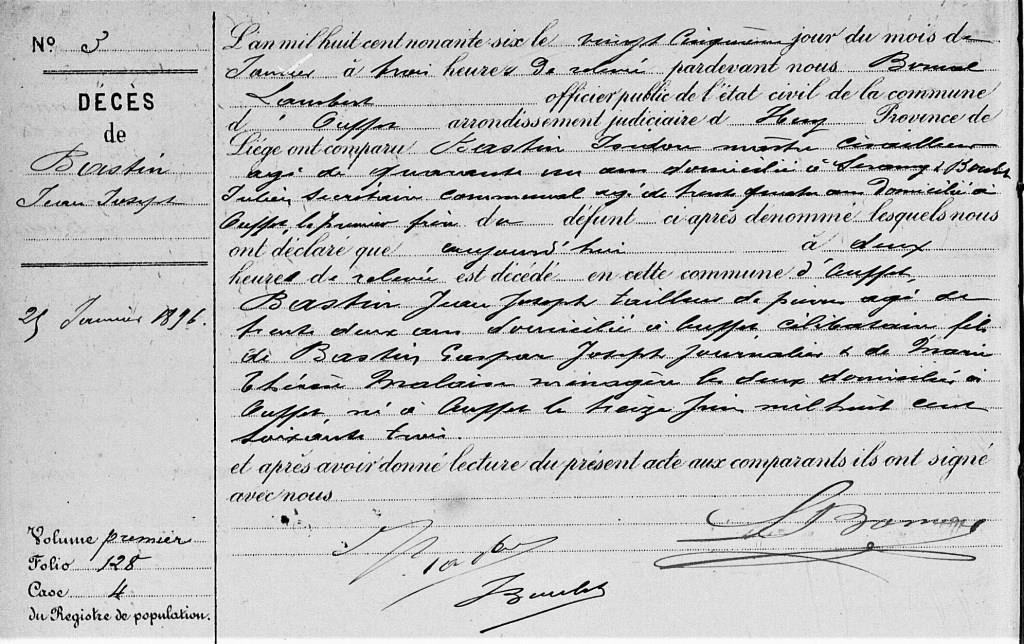 No 3
DÉCÈS
de
Bastin
Jean Joseph
25 Janvier 1896.
Volume premier
Folio 128
Case 4
du Registre de population.
L'an mil huit cent nonante six le vingt cinquième jour du mois de
Janvier à trois heures de relevée pardevant nous Bomal
Lambert officier public de l'état civil de la commune
d'Ouffet arrondissement judiciaire d Huy Province de
Liège ont comparu Bastin Isidore maître
agé de quarante un ans domicilié à Seraing & Boulet
Julien Secrétaire communal agé de trente quatre ans domicilié à
Ouffet, le premier frère du défunt ci après dénommé lesquels nous
ont déclaré que aujourd'hui à deux
heures de relevée est décédé en cette commune d'Ouffet,
Bastin Jean Joseph tailleur de pierres agé de
trente deux ans domicilié à Ouffet célibataire fils
de Bastin Gaspar Joseph journalier & de Marie
Thérèse Malaise ménagère les deux domiciliés à
Ouffet né à Ouffet le treize Juin mil huit cent
soixante trois.
et après avoir donné lecture du présent acte aux comparants ils ont signé
avec nous
L Bomal
JBoulet